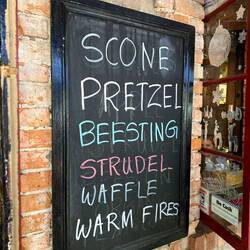 SCONE
PRETZEL
BEESTING
STRUDEL
WAFFLE
WARM FIRES